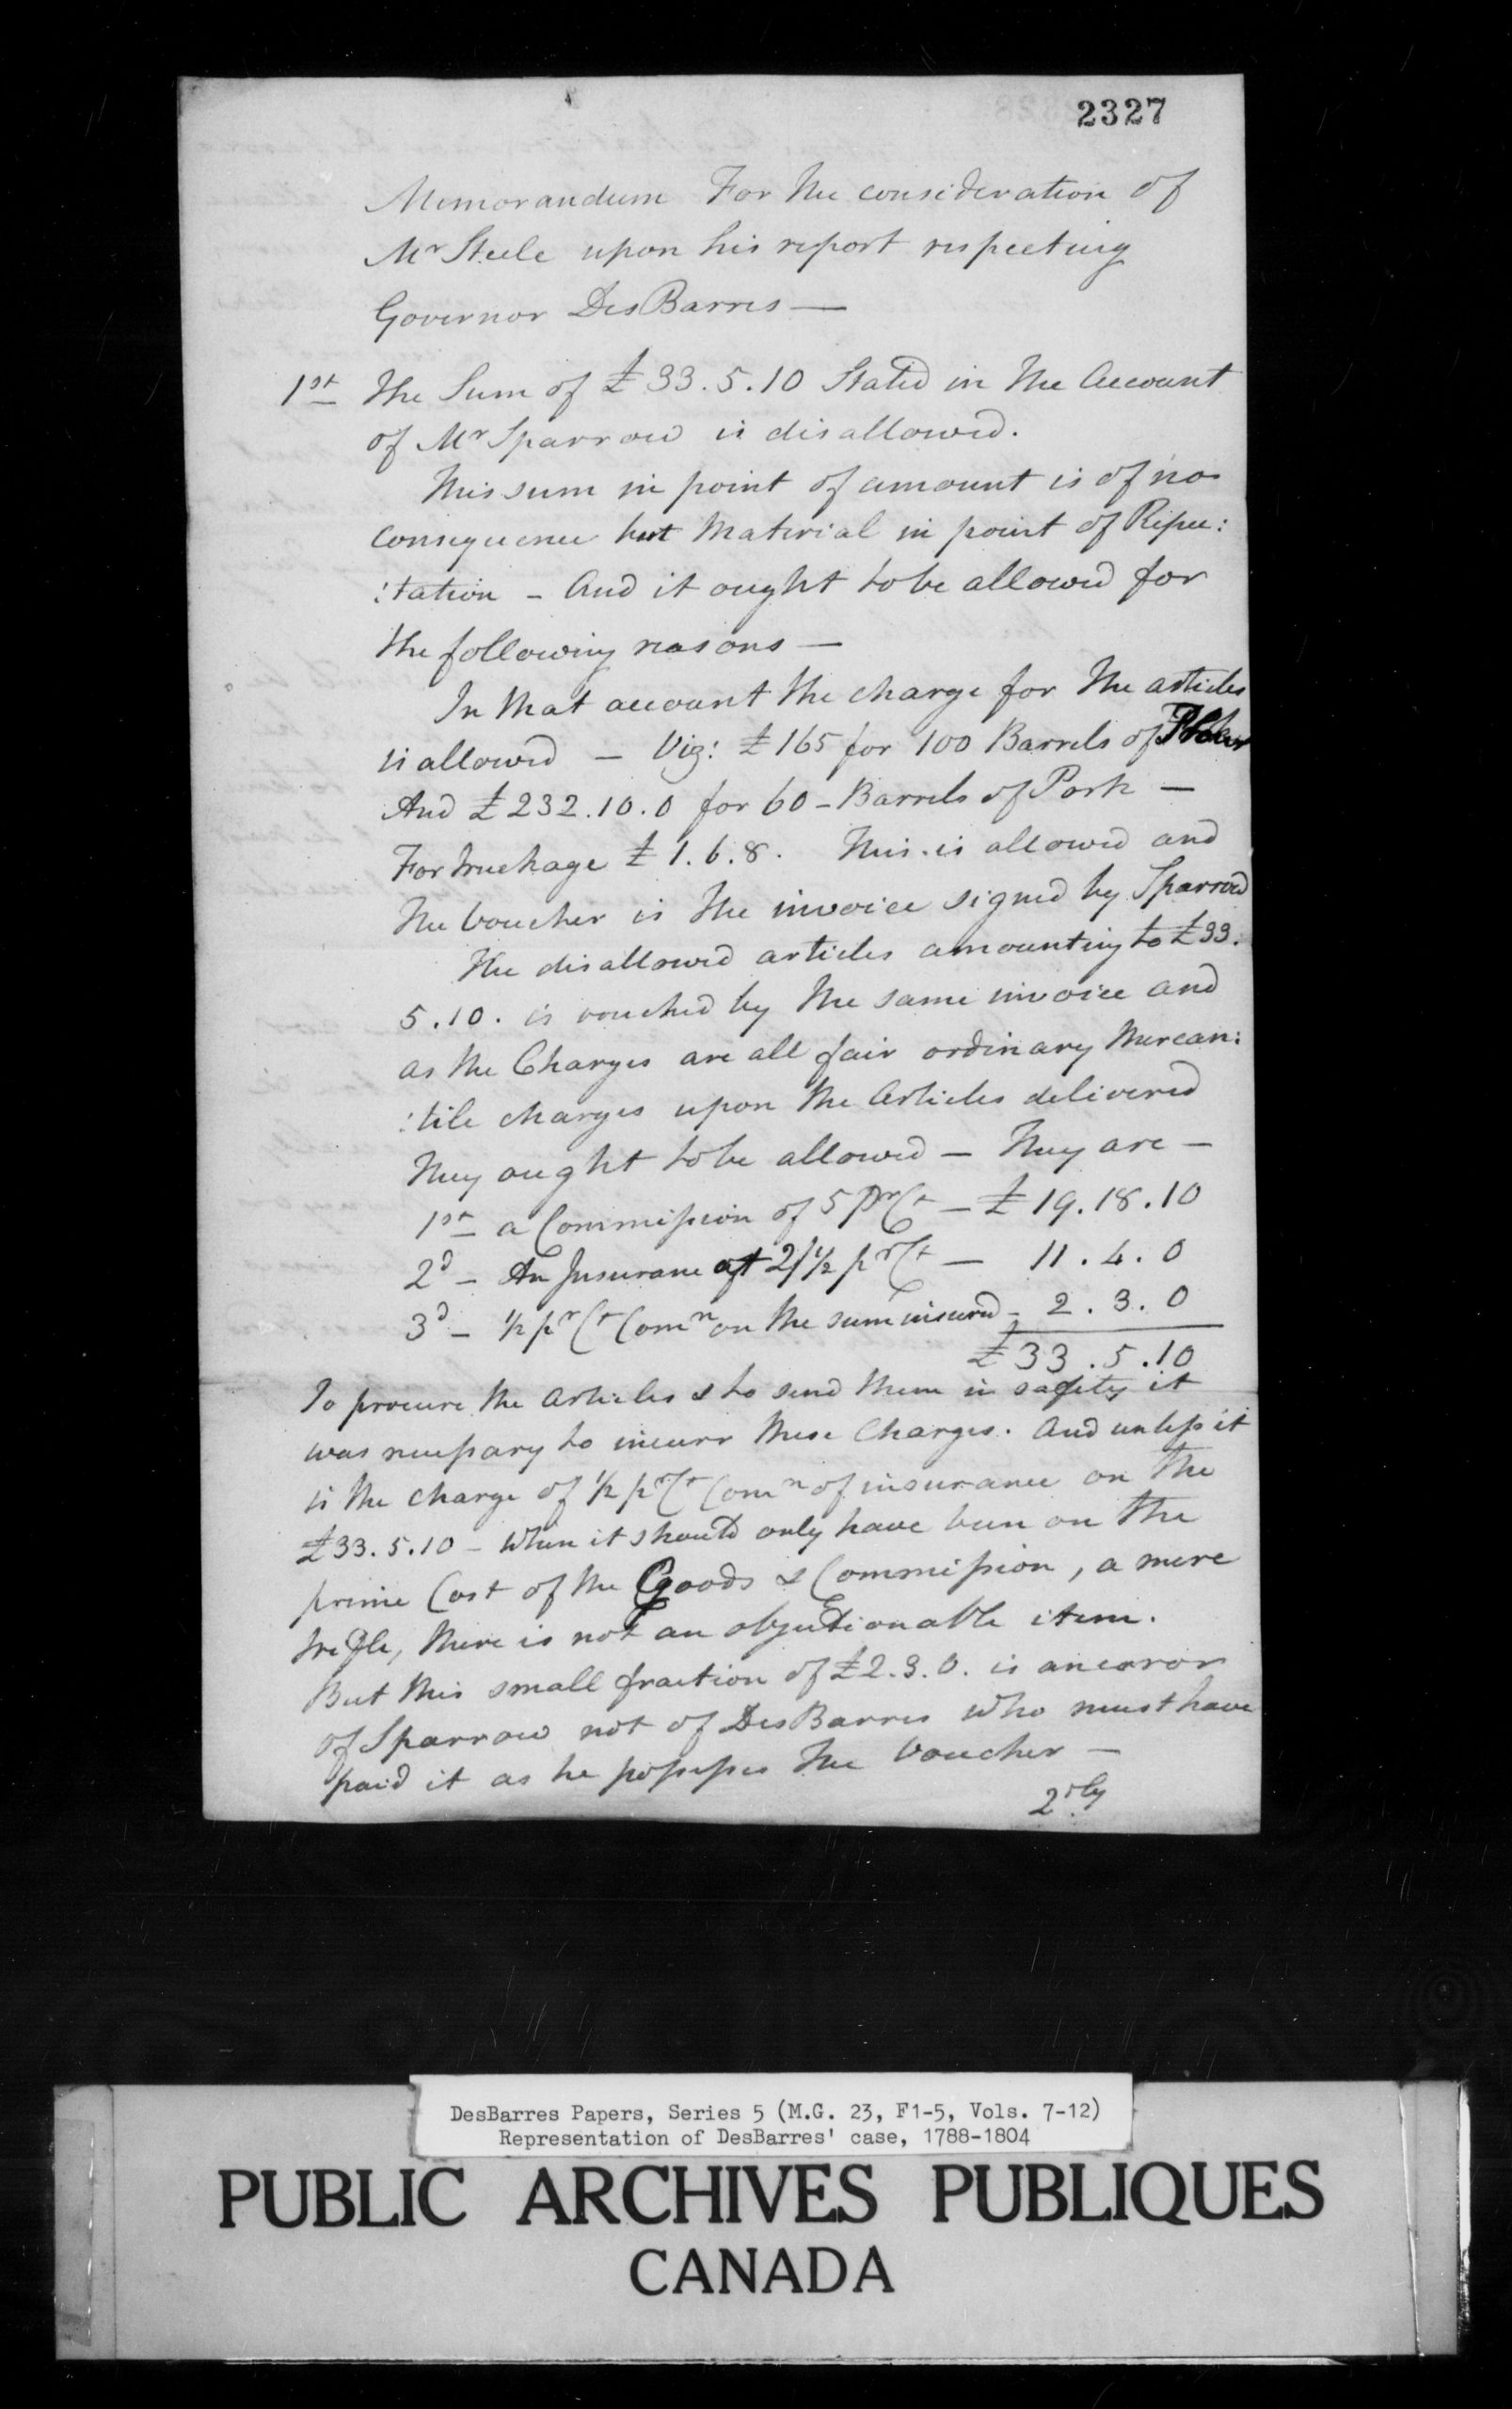 2327
Memorandum For the consideration of
Mr Steele upon his report respecting
Governor DesBarres —
1st The Sum of £33.5.10 Stated in the Account
of Mr Sparrow is disallowed.
This sum in point of amount is of no
consequence but Material in point of Repu:
:tation - And it ought to be allowed for
the following reasons —
In that account the charge for the articles
is allowed — Viz: £165 for 100 Barrels of Flour
And £232.10.0 for 60 - Barrels of Pork —
For truckage £1.6.8. This is allowed and
the Voucher is the invoice signed by Sparrow
The disallowed articles amounting to £33.
5.10. is vouched by the same invoice and
as the Charges are all fair ordinary Mercan:
:tile charges upon the Articles delivered
They ought to be allowed — They are —
1st a Commission of 5 Pr Ct — £19.18.10
2d - An Insurance at 2 1/2 pr Ct — 11.4.0
3d - 1/2 pr Ct Comn on the sum insured - 2.3.0
£33.5.10
To procure the Articles & to send them in safety it
was necessary to incurr these Charges. And unless it
is the charge of 1/2 pr Ct Comn of insurance on the
£33.5.10 - When it should only have been on the
prime Cost of the Goods & Commission, a mere
trifle, there is not an objectionable item.
But this small fraction of £2.3.0. is an error
of Sparrow not of DesBarres who must have
paid it as he possesses the Voucher —
2dly
DesBarres Papers, Series 5 (M.G. 23, F1-5, Vols. 7-12)
Representation of DesBarres' case, 1788-1804
PUBLIC ARCHIVES PUBLIQUES
CANADA